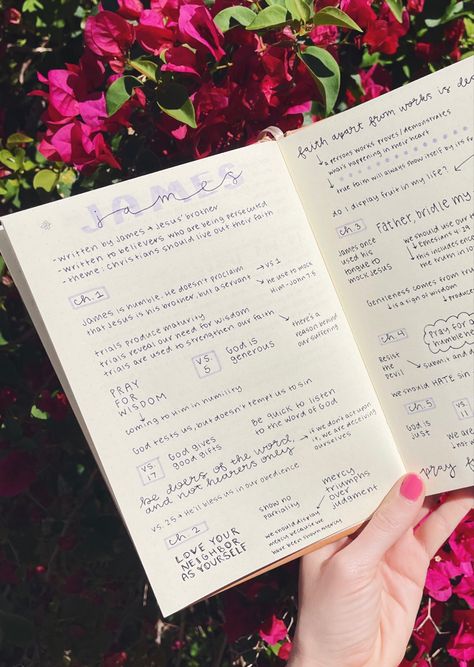 JAMES
james
- written by James → Jesus' brother
- written to believers who are being persecuted
- theme: Christians should live out their faith
ch. 1
James is humble, he doesn't proclaim
that Jesus is his brother, but a servant → vs 1
→ he use to mock
Him - John 7:5
trials produce maturity
trials reveal our need for wisdom
trials are used to strengthen our faith
→ there's a
reason behind
our suffering
PRAY
FOR
WISDOM
vs. 5
God is
generous
coming to Him in humility
God tests us, but doesn't tempt us to sin
vs. 17
God gives
good gifts
Be quick to listen
to the word of God
be doers of the word,
and not hearers only
→ if we don't act upon
it, we are deceiving
ourselves
vs. 25 → He'll bless us in our obedience
ch. 2
LOVE YOUR
NEIGHBOR
AS YOURSELF
show no
partiality
we should display
mercy because we
have been shown mercy
mercy
triumphs
over
judgment
faith apart from works is
a persons works proves/demonstrates
what's happening in their heart
true faith will always show itself by its
do i display fruit in my life?
ch. 3
Father, bridle my
James once
used his
tongue to
mock Jesus
we should use
Ephesians 4:29
this includes
the truth in
Gentleness comes from
is a sign of wisdom
ch. 4
pray for
humble
Resist
the
devil
submit and
we should HATE sin
ch. 5
God is
just
we are
pray